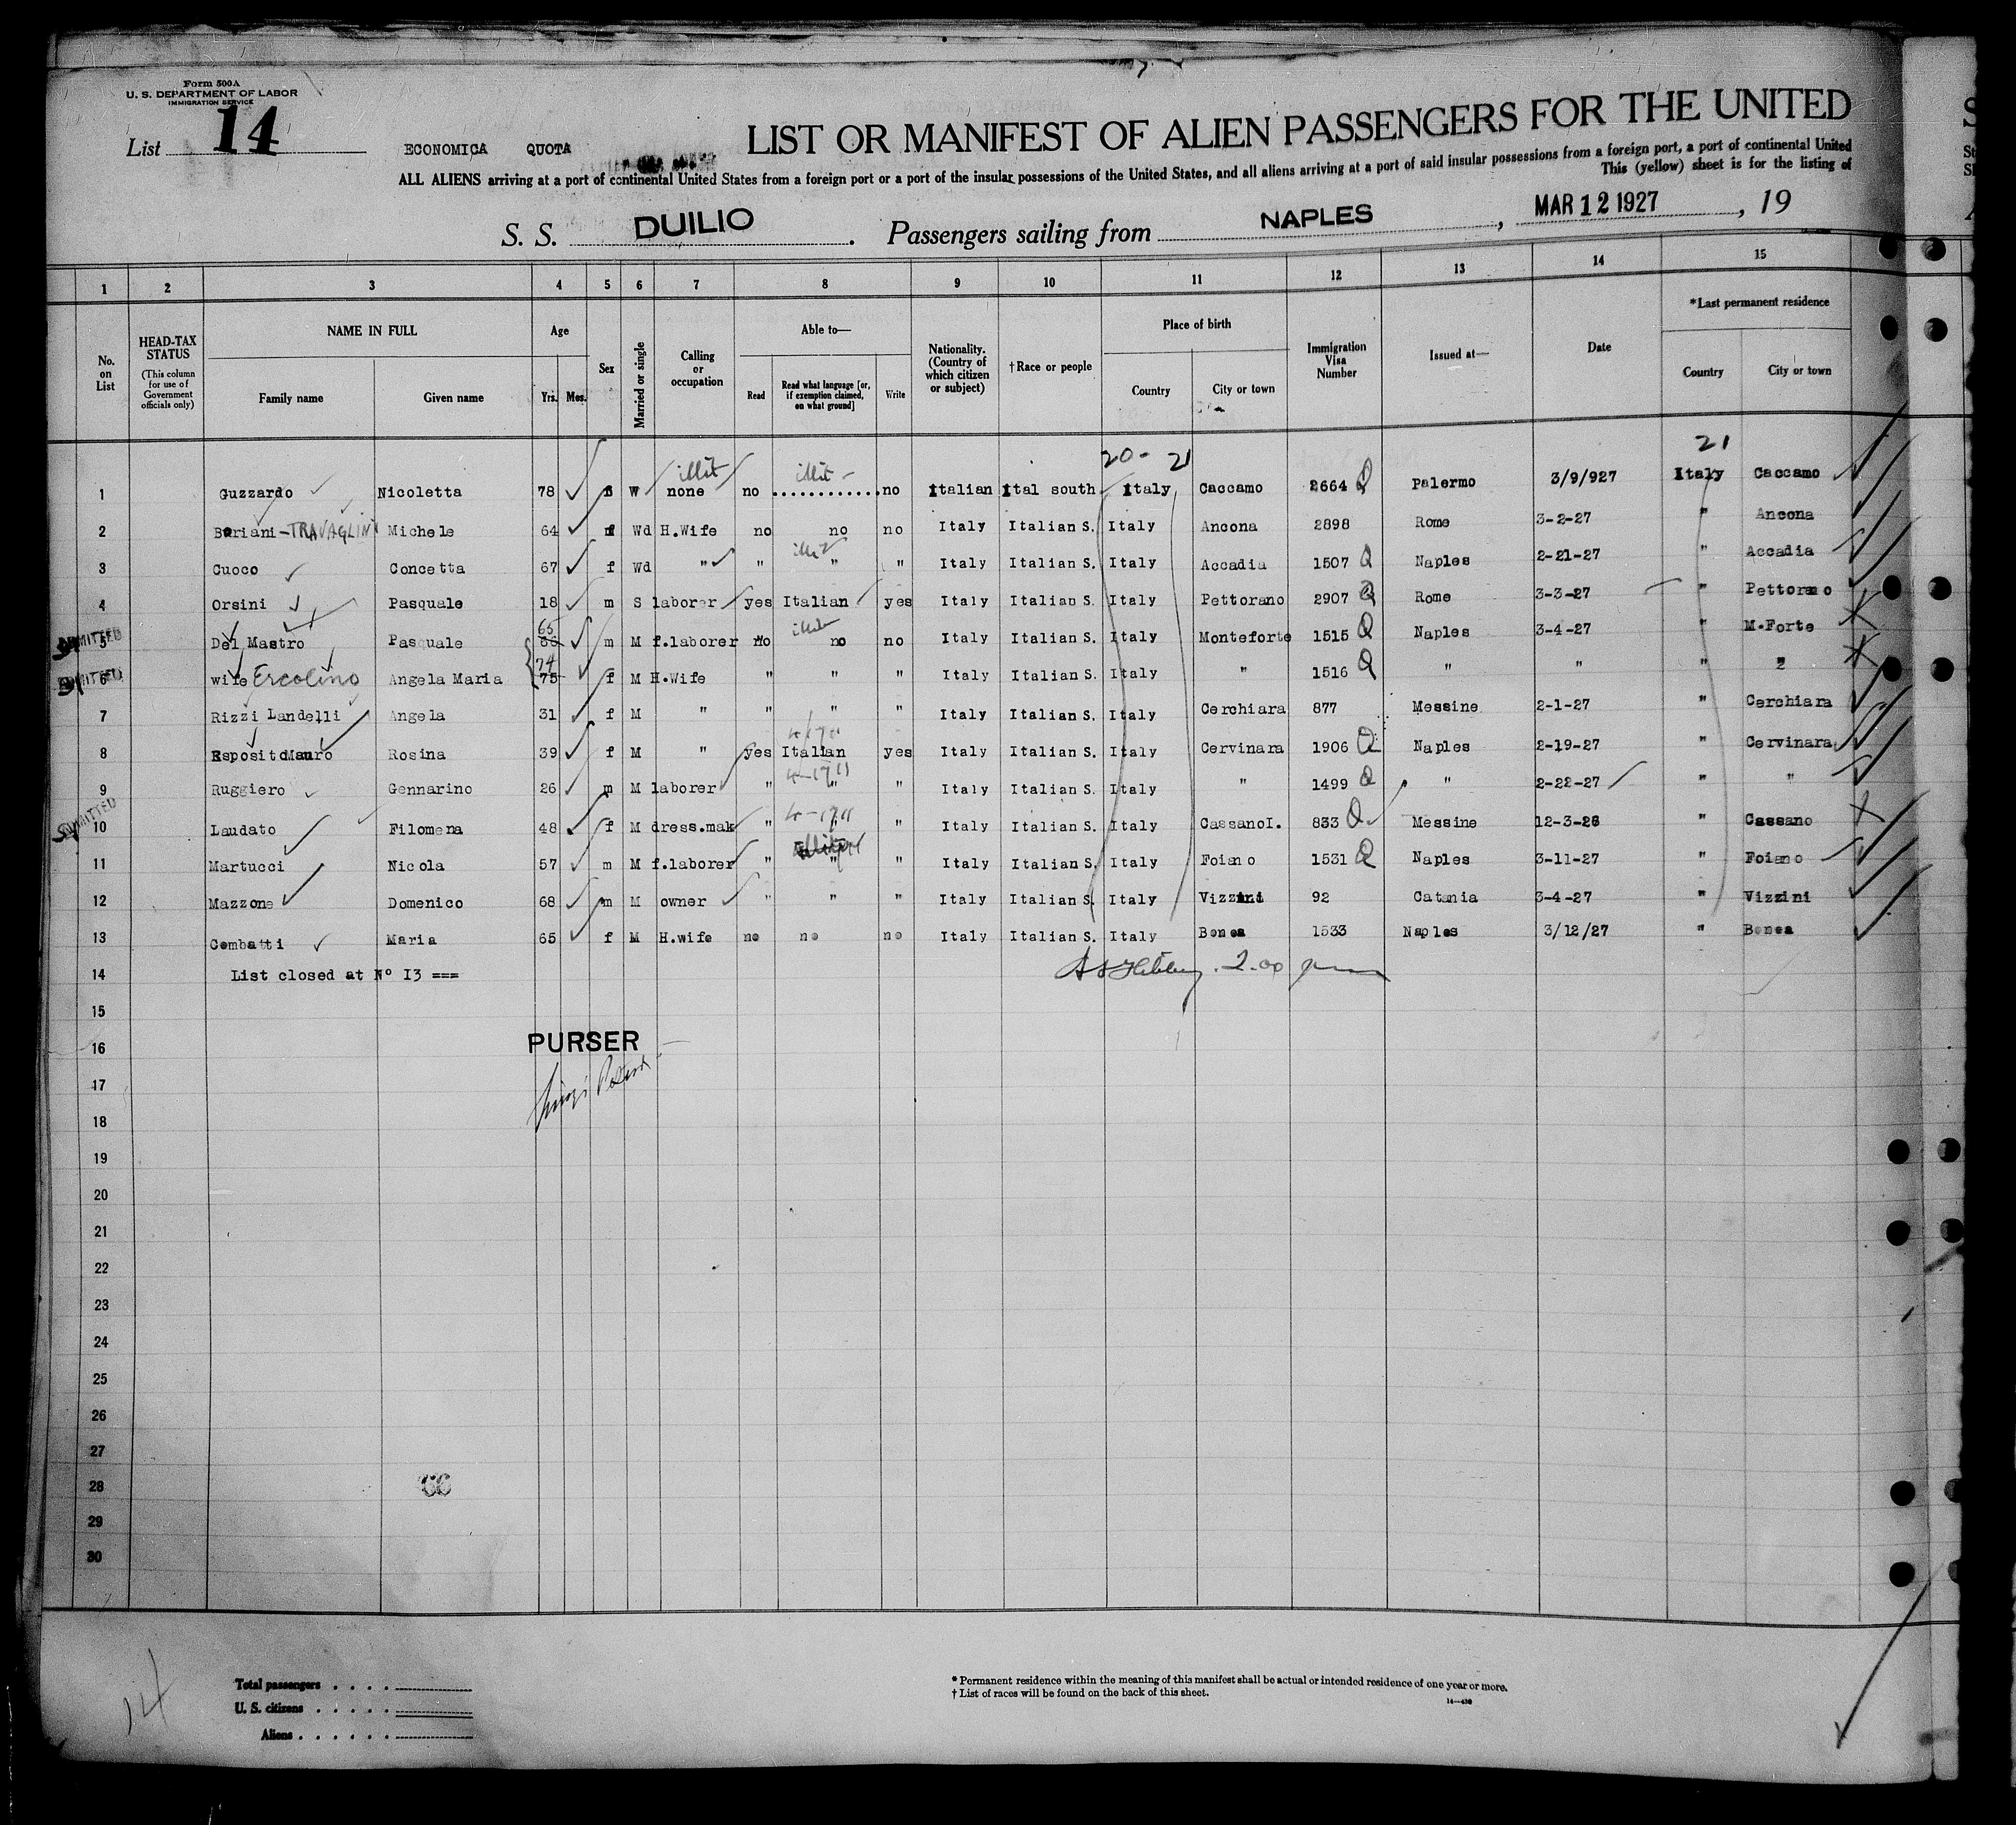 Form 500A
U. S. DEPARTMENT OF LABOR
IMMIGRATION SERVICE
List 14
ECONOMICA QUOTA
LIST OR MANIFEST OF ALIEN PASSENGERS FOR THE UNITED
ALL ALIENS arriving at a port of continental United States from a foreign port or a port of the insular possessions of the United States, and all aliens arriving at a port of said insular possessions from a foreign port, a port of continental United
This (yellow) sheet is for the listing of
S. S. DUILIO. Passengers sailing from NAPLES, MAR 12 1927, 19
1 2 3 4 5 6 7 8 9 10 11 12 13 14 15
No. on List
HEAD-TAX STATUS (This column for use of Government officials only)
NAME IN FULL
Family name Given name
Age
Yrs. Mos.
Sex
Married or single
Calling or occupation
Able to—
Read Read what language [or, if exemption claimed, on what ground] Write
Nationality. (Country of which citizen or subject)
†Race or people
Place of birth
Country City or town
Immigration Visa Number
Issued at—
Date
*Last permanent residence
Country City or town
20- 21 21
illit illit-
1 Guzzardo Nicoletta 78 W none no no Italian Ital south Italy Caccamo 2664 Q Palermo 3/9/927 Italy Caccamo
2 Bariani-TRAVAGLINI Michele 64 Wd H.Wife no no no Italy Italian S. Italy Ancona 2898 Rome 3-2-27 " Ancona
3 Cuoco Concetta 67 f Wd " " illit " " Italy Italian S. Italy Accadia 1507 Q Naples 2-21-27 " Accadia
4 Orsini Pasquale 18 m S laborer yes Italian yes Italy Italian S. Italy Pettorano 2907 Q Rome 3-3-27 " Pettorano
ADMITTED 5 Del Mastro Pasquale 65 m M f.laborer no illit no no Italy Italian S. Italy Monteforte 1515 Q Naples 3-4-27 " M.Forte
ADMITTED 6 wife Ercolino Angela Maria 74 75 f M H.Wife " " " Italy Italian S. Italy " 1516 Q " " " "
7 Rizzi Landelli Angela 31 f M " " " " Italy Italian S. Italy Cerchiara 877 Messine 2-1-27 " Cerchiara
8 Esposito Mauro Rosina 39 f M " yes Italian yes Italy Italian S. Italy Cervinara 1906 Q Naples 2-19-27 " Cervinara
9 Ruggiero Gennarino 26 m M laborer " " " Italy Italian S. Italy " 1499 Q " 2-22-27 " "
ADMITTED 10 Laudato Filomena 48 f M dress.mak " " " Italy Italian S. Italy CassanoI. 833 Q Messine 12-3-26 " Cassano
11 Martucci Nicola 57 m M f.laborer " " " Italy Italian S. Italy Foiano 1531 Q Naples 3-11-27 " Foiano
12 Mazzone Domenico 68 m M owner " " " Italy Italian S. Italy Vizzini 92 Catania 3-4-27 " Vizzini
13 Combatti Maria 65 f M H.wife no no no Italy Italian S. Italy Bonea 1533 Naples 3/12/27 " Bonea
14 List closed at Nº I3 === 2.00 pm
15
16 PURSER
17
18
19
20
21
22
23
24
25
26
27
28 66
29
30
14
Total passengers . . . .
U. S. citizens . . . . .
Aliens . . . . . .
* Permanent residence within the meaning of this manifest shall be actual or intended residence of one year or more.
† List of races will be found on the back of this sheet.
14—430